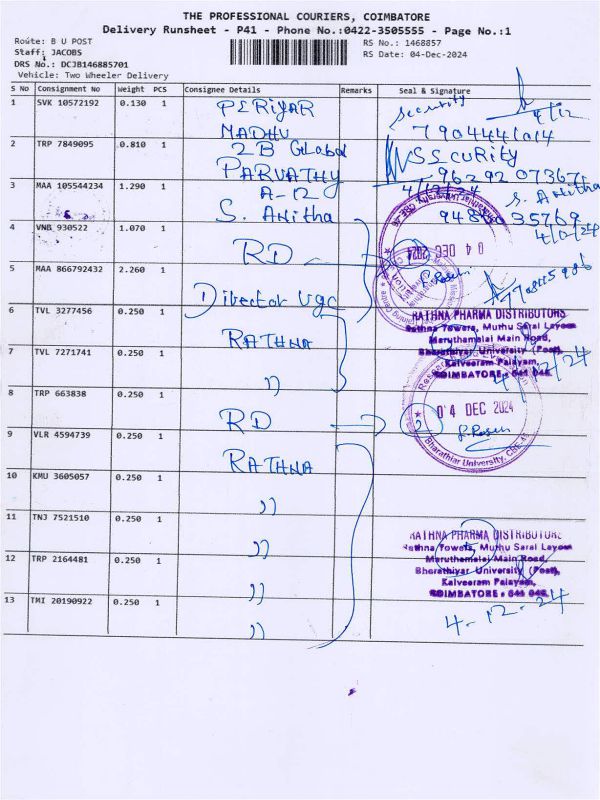 THE PROFESSIONAL COURIERS, COIMBATORE
Delivery Runsheet - P41 - Phone No.:0422-3505555 - Page No.:1
Route: B U POST
RS No.: 1468857
Staff: JACOBS
RS Date: 04-Dec-2024
DRS No.: DCJB146885701
Vehicle: Two Wheeler Delivery
S No Consignment No Weight PCS Consignee Details Remarks Seal & Signature
1 SVK 10572192 0.130 1 PERIYAR security 4/12
MADHU 7904441014
2 TRP 7849095 0.810 1 2B Global SEcuRity
PARVATHY 96292 07367
3 MAA 105544234 1.290 1 A-12 4/12/24 S. Anitha
S. Anitha 35769
4 VNB 930522 1.070 1 RD 04 DEC 2024
5 MAA 866792432 2.260 1 Director UGC
6 TVL 3277456 0.250 1 RATHNA RATHNA PHARMA DISTRIBUTORS
Rathna Towers, Muthu Saral Layom
Maruthamalai Main Road,
7 TVL 7271741 0.250 1 )) Bharathiyar University (Post),
Kalveeram Palayam,
COIMBATORE - 641 046.
8 TRP 663838 0.250 1 RD 04 DEC 2024
Bharathiar University, CBE-
9 VLR 4594739 0.250 1 RATHNA
10 KMU 3605057 0.250 1 ))
11 TNJ 7521510 0.250 1 )) RATHNA PHARMA DISTRIBUTORS
Rathna Towers, Muthu Saral Layom
12 TRP 2164481 0.250 1 )) Maruthamalai Main Road,
Bharathiyar University (Post),
Kalveeram Palayam,
COIMBATORE - 641 046.
13 TMI 20190922 0.250 1 )) 4-12-24